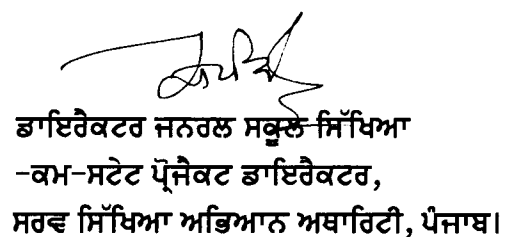 ਡਾਇਰੈਕਟਰ ਜਨਰਲ ਸਕੂਲ ਸਿੱਖਿਆ
-ਕਮ-ਸਟੇਟ ਪ੍ਰੋਜੈਕਟ ਡਾਇਰੈਕਟਰ,
ਸਰਵ ਸਿੱਖਿਆ ਅਭਿਆਨ ਅਥਾਰਿਟੀ, ਪੰਜਾਬ।